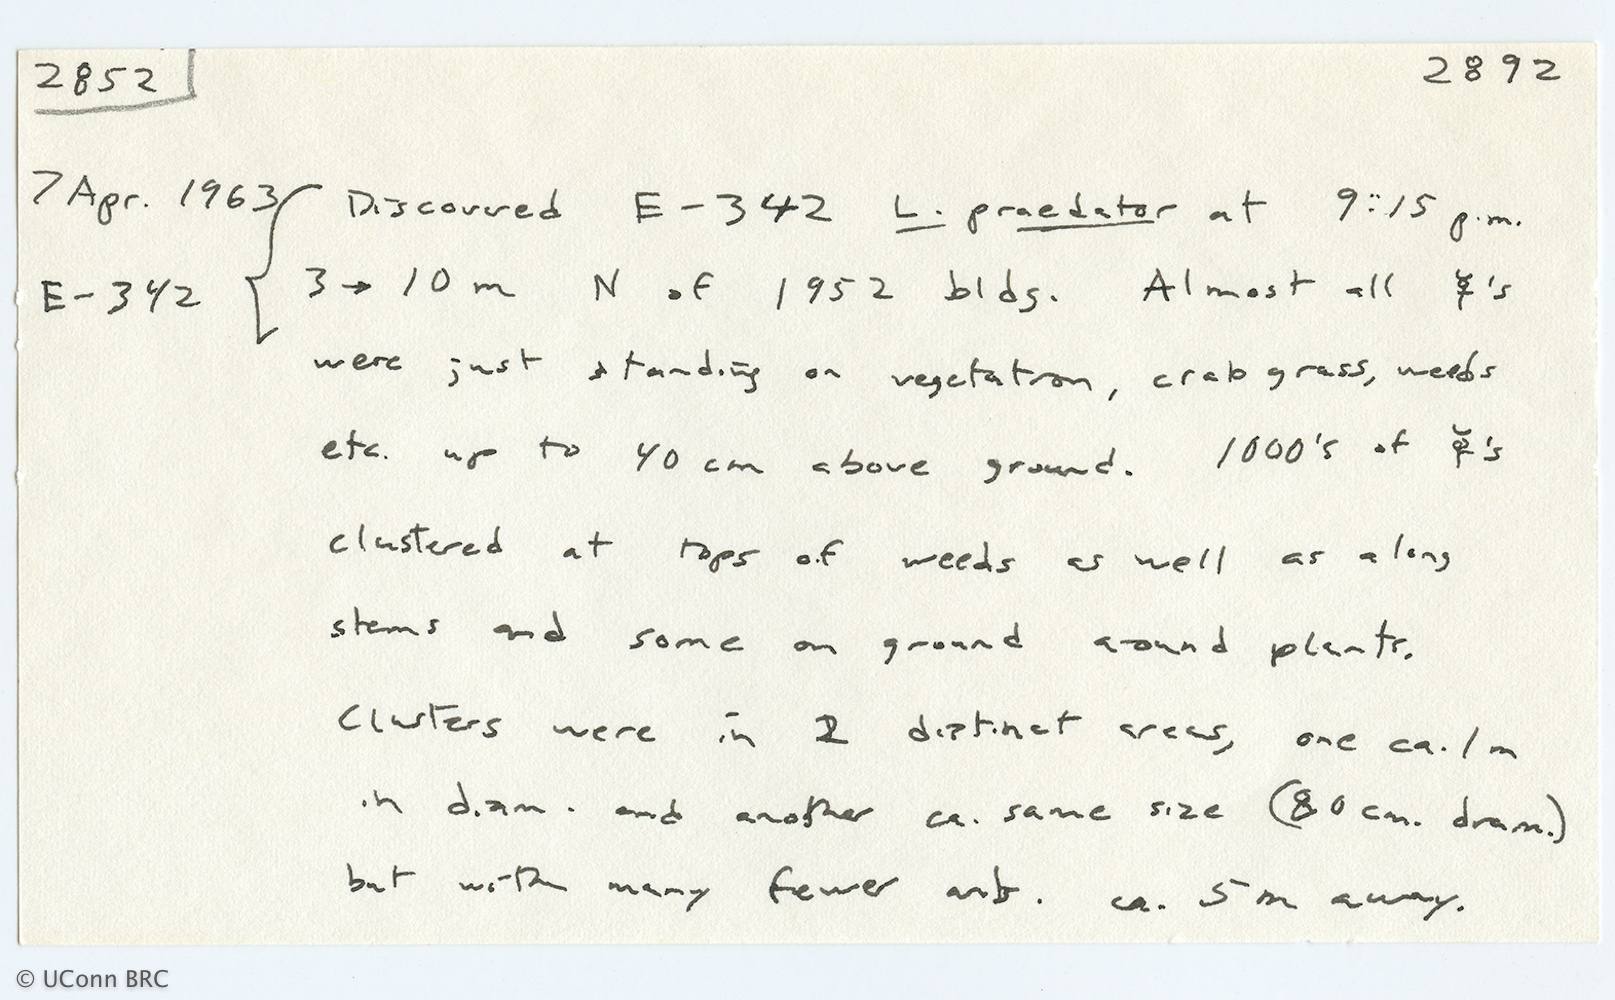 2852 2892
7 Apr. 1963 Discovered E-342 L. praedator at 9:15 p.m.
E-342 3 → 10 m N of 1952 bldg. Almost all ☿'s
were just standing on vegetation, crab grass, weeds
etc. up to 40 cm above ground. 1000's of ☿'s
clustered at tops of weeds as well as along
stems and some on ground around plants.
Clusters were in 2 distinct areas, one ca. 1 m
in diam. and another ca. same size (80 cm. diam.)
but with many fewer ants. ca. 5 m away.
© UConn BRC